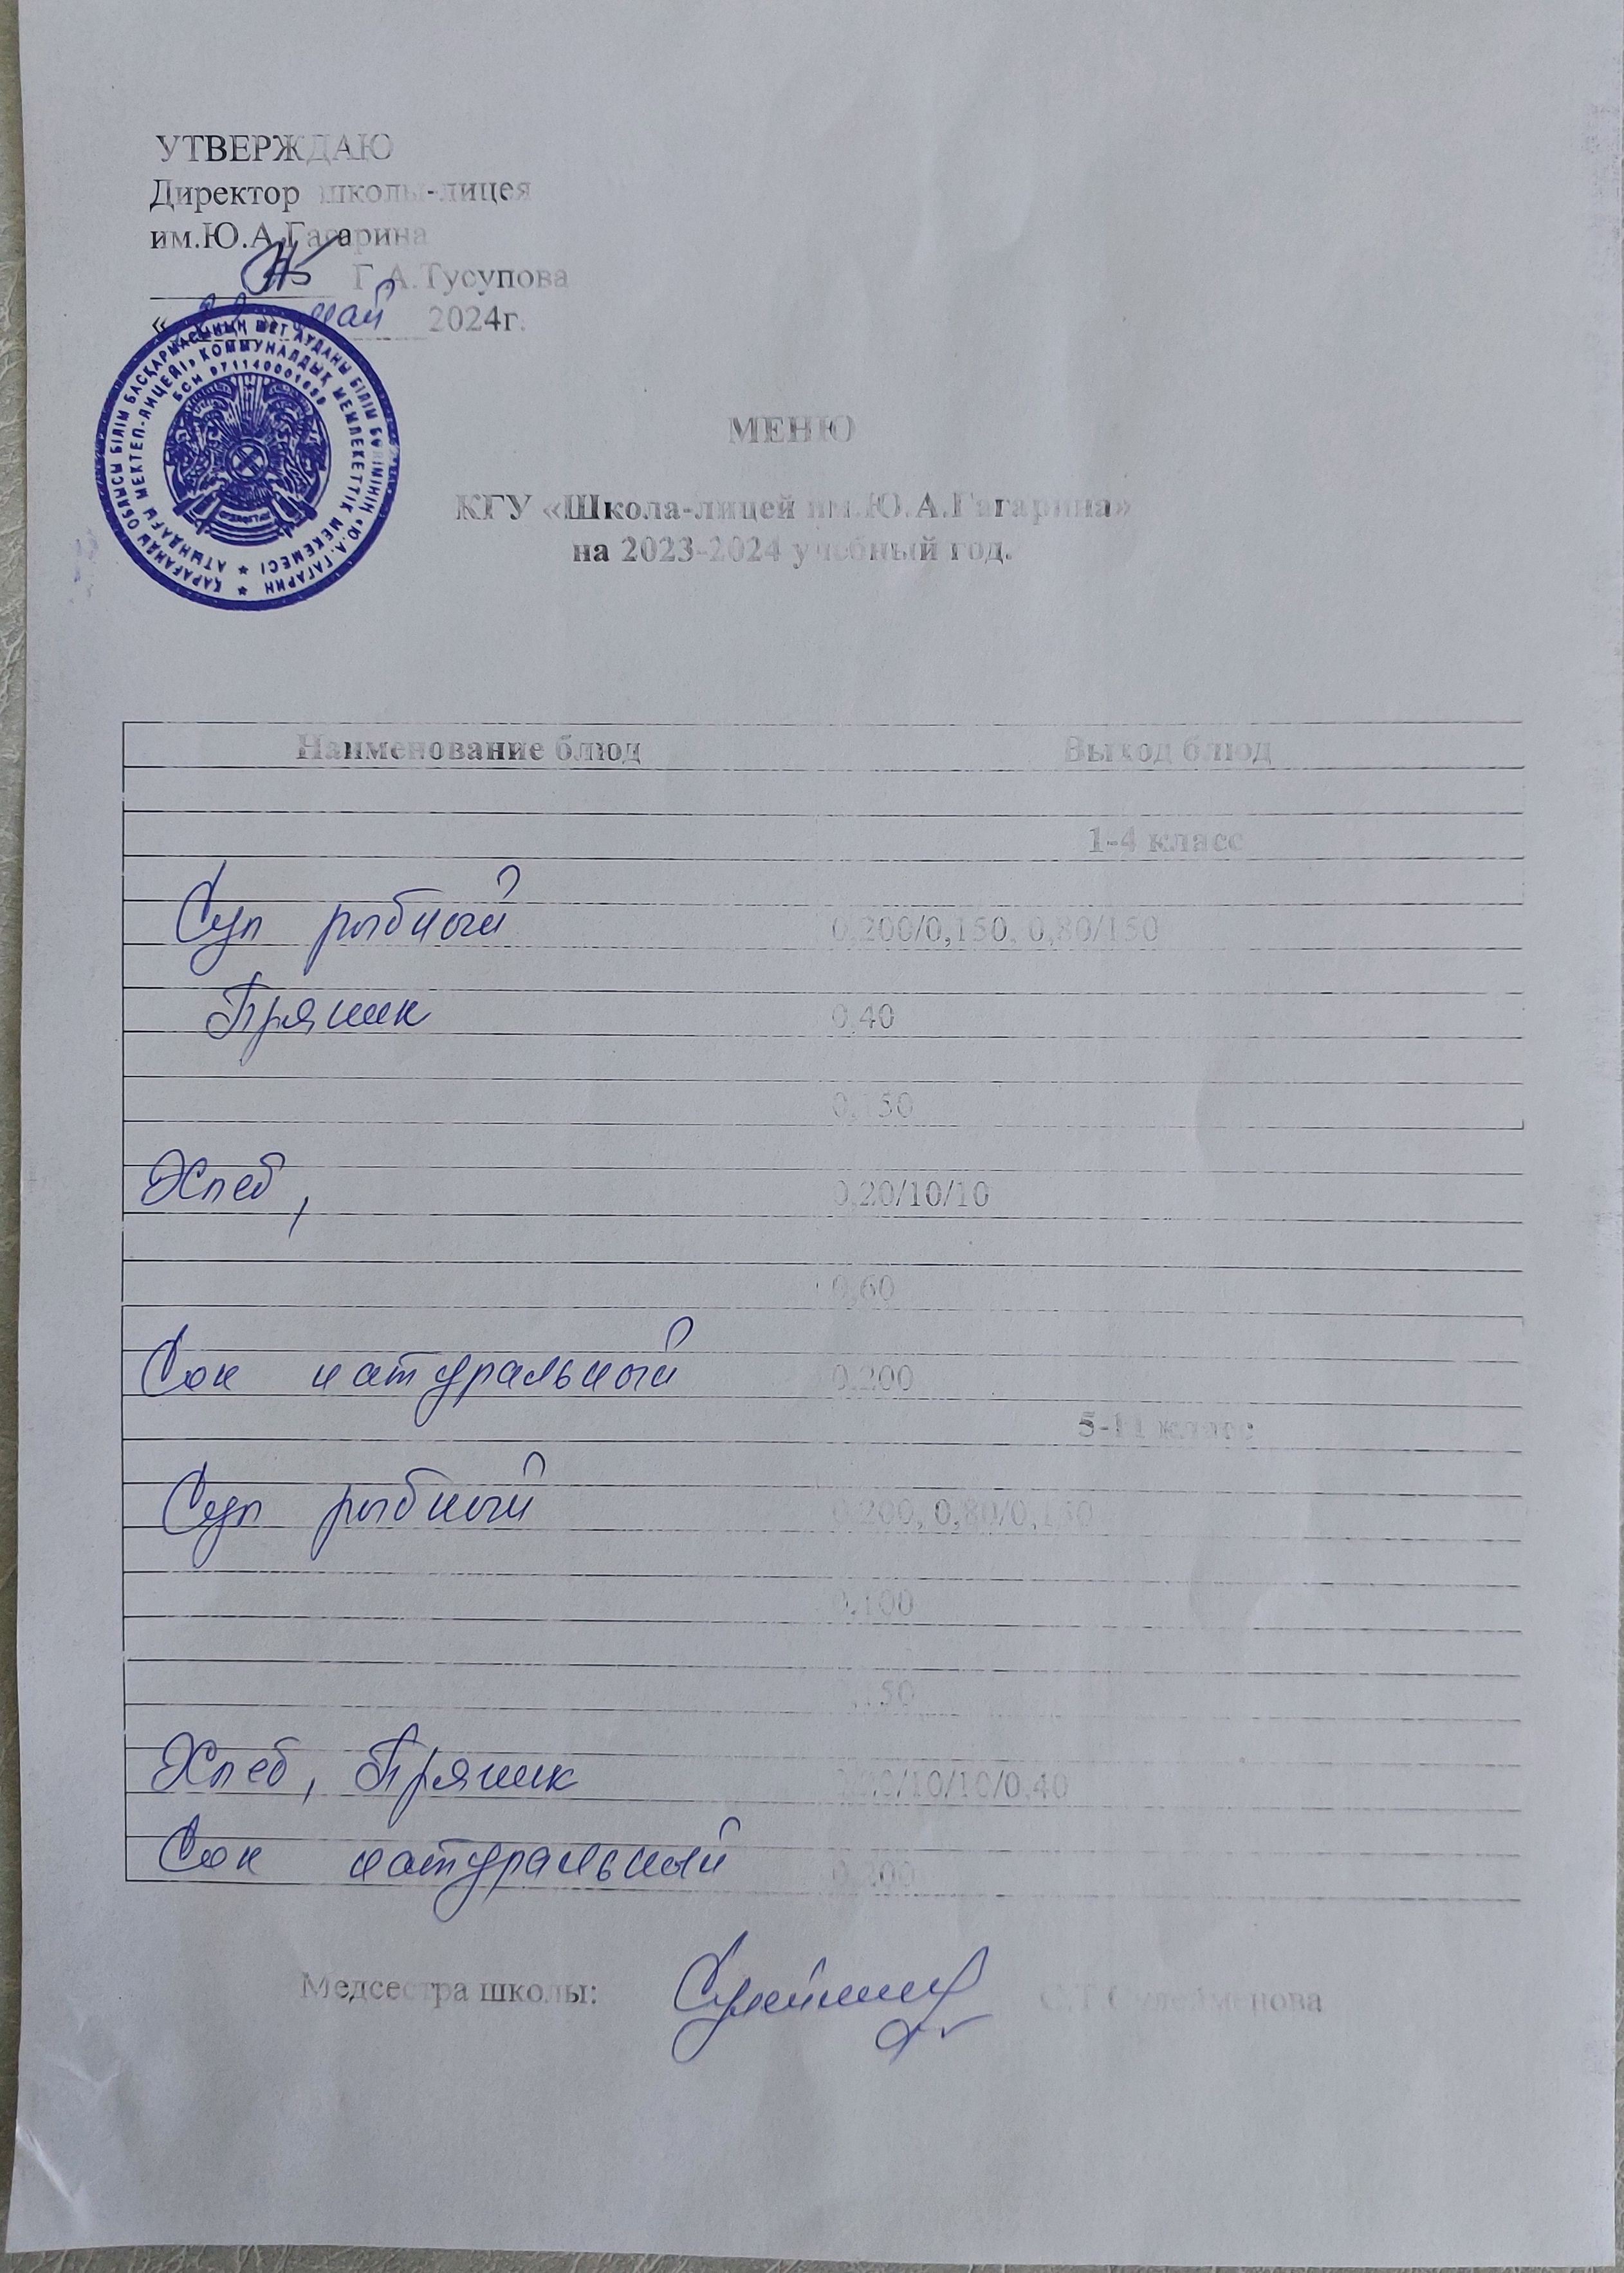 УТВЕРЖДАЮ
Директор школы-лицея
им.Ю.А.Гагарина
Г.А.Тусупова
« » май 2024г.
ҚАРАҒАНДЫ ОБЛЫСЫ БІЛІМ БАСҚАРМАСЫНЫҢ ШЕТ АУДАНЫ БІЛІМ БӨЛІМІНІҢ «Ю.А.ГАГАРИН
АТЫНДАҒЫ МЕКТЕП-ЛИЦЕЙІ» КОММУНАЛДЫҚ МЕМЛЕКЕТТІК МЕКЕМЕСІ
БСН
МЕНЮ
КГУ «Школа-лицей им.Ю.А.Гагарина»
на 2023-2024 учебный год.
Наименование блюд Выход блюд
1-4 класс
Суп рыбный 0,200/0,150, 0,80/150
Пряник 0,40
0,150
Хлеб, 0,20/10/10
0,60
Сок натуральный 0,200
5-11 класс
Суп рыбный 0,200, 0,80/0,150
0,100
0,150
Хлеб, Пряник /10/10/0,40
Сок натуральный 0,200
Медсестра школы: С.Т.Сулейменова